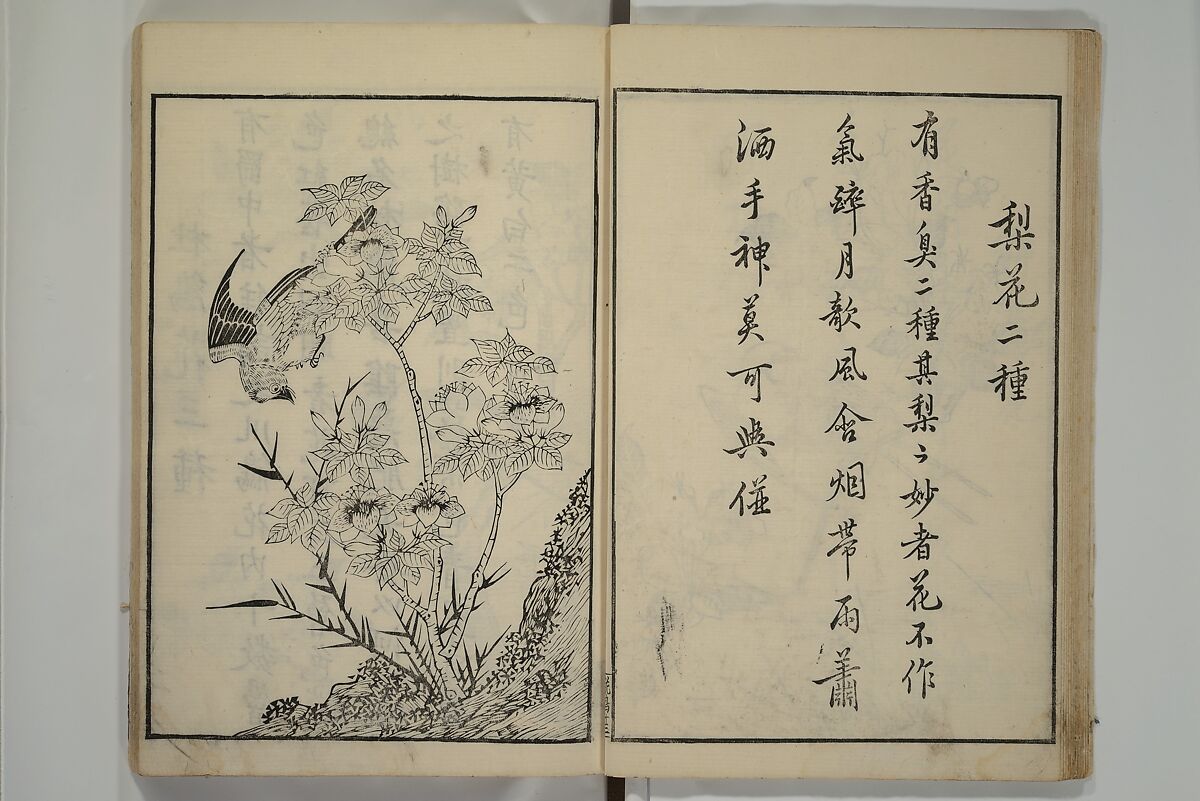 梨花二種
有香臭二種其梨之妙者花不作
氣醉月欹風含烟帶雨蕭
洒手神莫可與